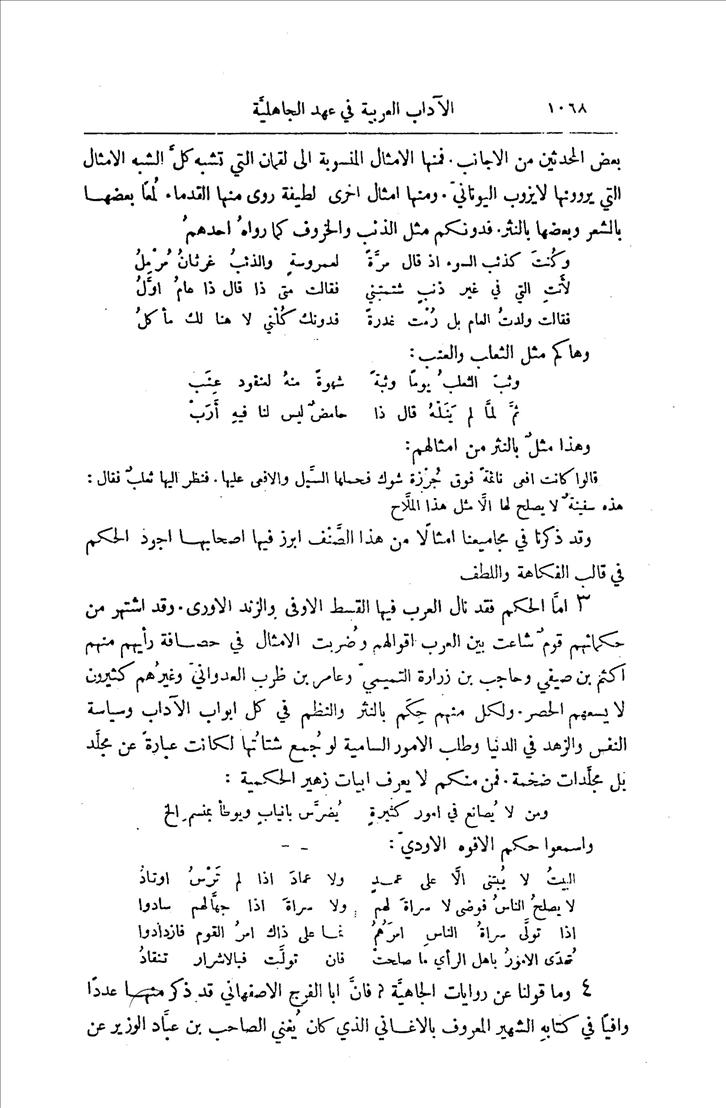 ١٠٦٨ الآداب العربية في عهد الجاهليَّة
بعض المحدثين من الاجانب. فمنها الامثال المنسوبة الى لقمان التي تشبه كلَّ الشبه الامثال
التي يروونها لايزوب اليونانيّ. ومنها امثال اخرى لطيفة روى منها القدماء لُمعًا بعضهـا
بالشعر وبعضها بالنثر. فدونكم مثل الذئب والخروف كما رواهُ احدهمُ
وكُنتَ كذئب السوء اذ قال مرَّةً لعمروسةٍ والذئبُ غرثانُ مُرْمِلُ
لأَنتِ التي في غير ذنبٍ شتمتني فقالت متى ذا قال ذا عامُ اوَّلُ
فقالت ولدتُ العام بل رُمْتَ غدرةً فدونك كُلْني لا هنا لك مأكلُ
وهاكم مثل الثعلب والعنب:
وثبَ الثعلبُ يومًا وثبةً شهوةً منهُ لعنقود عِنَب
ثمَّ لمَّا لم يَنَلْهُ قال ذا حامضٌ ليس لنا فيهِ أَرَبْ
وهذا مثلٌ بالنثر من امثالهم:
قالوا كانت افعى نائمةً فوق جُرْزة شوك فحملها السَّيل والافعى عليها. فنظر اليها ثعلبٌ فقال:
هذه سفينةٌ لا يصلح لها الَّا مثل هذا الملَّاح
وقد ذكرنا في مجاميعنا امثالًا من هذا الصَّنْف ابرز فيها اصحابهـا اجود الحكم
في قالب الفكاهة واللطف
٣ امَّا الحكم فقد نال العرب فيها القسط الاوفى والزند الاورى. وقد اشتهر من
حكمائهم قومٌ شاعت بين العرب اقوالهم وضُربت الامثال في حصـافة رأيهم منهم
اكثم بن صيفي وحاجب بن زرارة التميميّ وعامر بن ظرب العدوانيّ وغيرُهم كثيرون
لا يسعهم الحصر. ولكل منهم حِكَم بالنثر والنظم في كل ابواب الآداب وسياسة
النفس والزهد في الدنيا وطلب الامور السامية لو جُمع شتاتُها لكانت عبارةً عن مجلَّد
بل مجلَّدات ضخمة. فمن منكم لا يعرف ابيات زهير الحكمية:
ومن لا يُصانع في امور كثيرةٍ يُضرَّس بانيابٍ ويوطأ بمنسِم الخ
واسمعوا حكم الافوه الاوديّ:
البيتُ لا يُبتنى الَّا على عمـدٍ ولا عمادَ اذا لم تَرْسُ اوتادُ
لا يصلحُ الناسُ فوضى لا سراةَ لهم ولا سراةَ اذا جهَّالهم سادوا
اذا تولَّى سراةُ الناسِ امرَهُمُ نمـا على ذاك امرُ القوم فازدادوا
تُهدَى الامورُ باهل الرأي ما صلحتْ فان تولَّت فبالاشرار تنقادُ
٤ وما قولنا عن روايات الجاهليَّة؟ فانَّ ابا الفرج الاصفهاني قد ذكر منهـا عددًا
وافيًا في كتابهِ الشهير المعروف بالاغاني الذي كان يُغني الصاحب بن عبَّاد الوزير عن